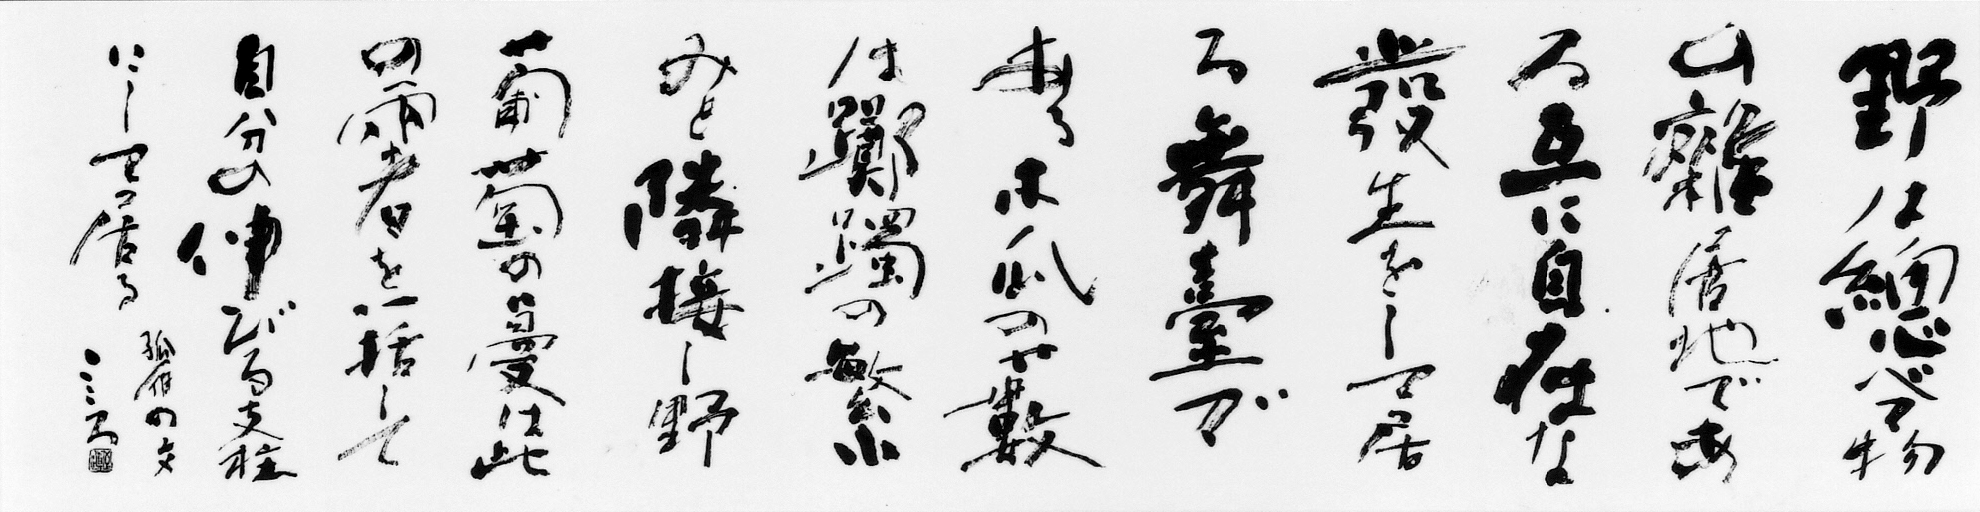 野は總べて物
の雜居地であ
る互に自在な
發生をして居
る舞臺で
ある木瓜の藪
は躑躅の繁
みと隣接し野
葡萄の蔓は此
の兩者を一括して
自分の伸びる支柱
にして居る
の文